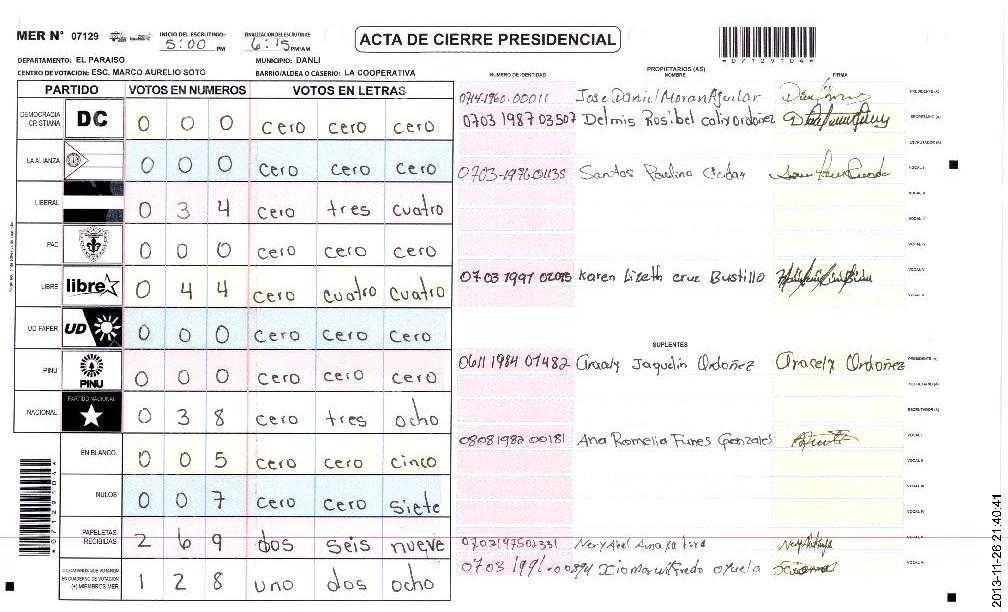 MER N° 07129
INICIO DEL ESCRUTINIO: 5:00 PM
FINALIZACION DEL ESCRUTINIO: 6:15 PM/AM
ACTA DE CIERRE PRESIDENCIAL
*07129104*
DEPARTAMENTO: EL PARAISO
MUNICIPIO: DANLI
CENTRO DE VOTACION: ESC. MARCO AURELIO SOTO
BARRIO/ALDEA O CASERIO: LA COOPERATIVA
PARTIDO VOTOS EN NUMEROS VOTOS EN LETRAS
DEMOCRACIA CRISTIANA DC 0 0 0 cero cero cero
LA ALIANZA 0 0 0 cero cero cero
LIBERAL 0 3 4 cero tres cuatro
PAC 0 0 0 cero cero cero
LIBRE libre 0 4 4 cero cuatro cuatro
UD FAPER UD 0 0 0 cero cero cero
PINU PINU 0 0 0 cero cero cero
NACIONAL PARTIDO NACIONAL 0 3 8 cero tres ocho
EN BLANCO 0 0 5 cero cero cinco
NULOS 0 0 7 cero cero siete
PAPELETAS RECIBIDAS 2 6 9 dos seis nueve
CIUDADANOS QUE VOTARON EN CUADERNO DE VOTACION (+) MIEMBROS MER 1 2 8 uno dos ocho
*07129104*
PROPIETARIOS (AS)
NUMERO DE IDENTIDAD NOMBRE FIRMA
0714-1960-00011 Jose Daniel Moran Aguilar PRESIDENTE (A)
0703 1987 03507 Delmis Rosibel calix ordoñez SECRETARIO (A)
ESCRUTADOR (A)
0703-1976-01135 Santos Paulino VOCAL I
VOCAL II
VOCAL III
VOCAL IV
0703 1997 02095 Karen Lizeth cruz Bustillo VOCAL V
VOCAL VI
SUPLENTES
0611 1984 01482 Aracely Jaquelin Ordoñez Aracely Ordoñez PRESIDENTE (A)
SECRETARIO (A)
ESCRUTADOR (A)
0808 1982 00181 Ana Romelia Funes Gonzales VOCAL I
VOCAL II
VOCAL III
VOCAL IV
0703197502331 Nery Abel VOCAL V
0703 1991-00894 VOCAL VI
2013-11-26 21:40:41